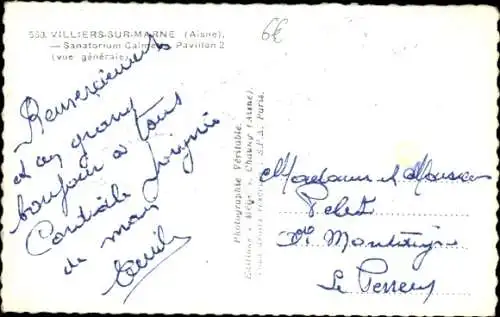 553. VILLIERS-SUR-MARNE (Aisne).
— Sanatorium Calmette Pavillon 2
(vue générale)
6€
Remerciements
et un grand
bonjour à tous
Contrôle soigné
de mon
Emile
Photographie Véritable.
Editions « Mège » Chauny (Aisne).
S.P.A. Paris.
Madame et Monsieur
Pelet
Montaigu
Le Perreux